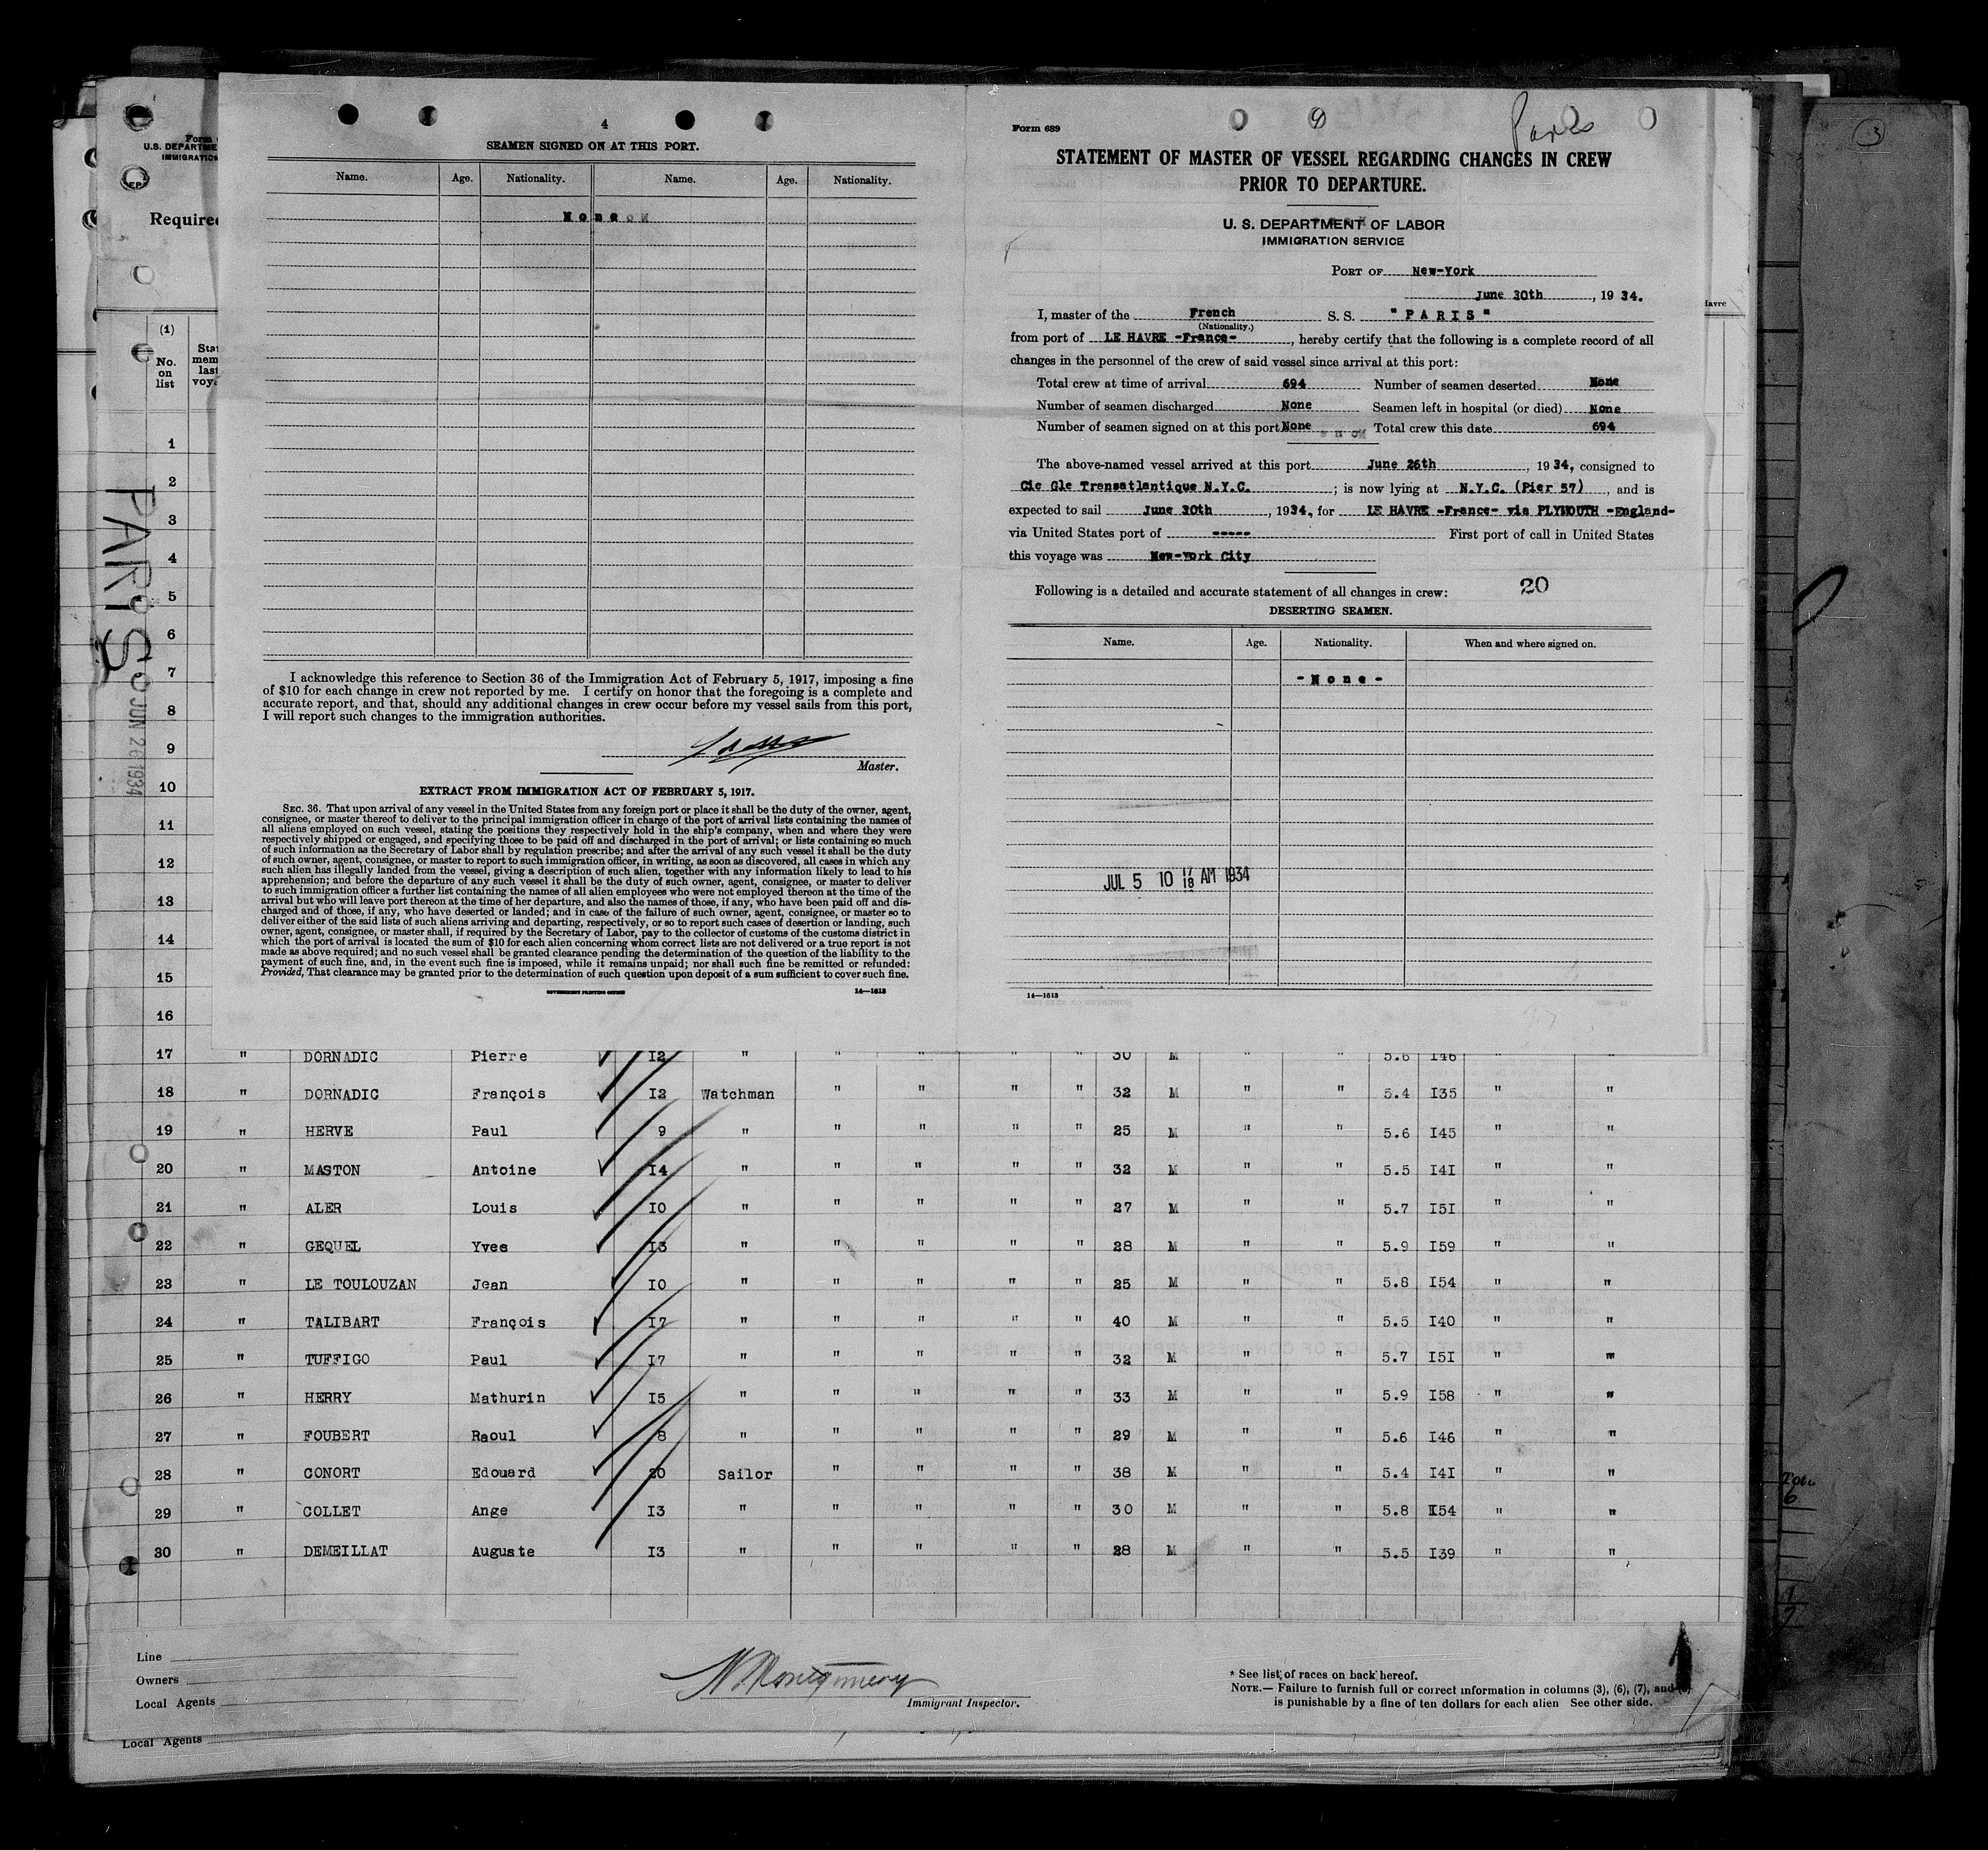 4
SEAMEN SIGNED ON AT THIS PORT.
Name. Age. Nationality. Name. Age. Nationality.
None
I acknowledge this reference to Section 36 of the Immigration Act of February 5, 1917, imposing a fine
of $10 for each change in crew not reported by me. I certify on honor that the foregoing is a complete and
accurate report, and that, should any additional changes in crew occur before my vessel sails from this port,
I will report such changes to the immigration authorities.
Master.
EXTRACT FROM IMMIGRATION ACT OF FEBRUARY 5, 1917.
SEC. 36. That upon arrival of any vessel in the United States from any foreign port or place it shall be the duty of the owner, agent,
consignee, or master thereof to deliver to the principal immigration officer in charge of the port of arrival lists containing the names of
all aliens employed on such vessel, stating the positions they respectively hold in the ship's company, when and where they were
respectively shipped or engaged, and specifying those to be paid off and discharged in the port of arrival; or lists containing so much
of such information as the Secretary of Labor shall by regulation prescribe; and after the arrival of any such vessel it shall be the duty
of such owner, agent, consignee, or master to report to such immigration officer, in writing, as soon as discovered, all cases in which any
such alien has illegally landed from the vessel, giving a description of such alien, together with any information likely to lead to his
apprehension; and before the departure of any such vessel it shall be the duty of such owner, agent, consignee, or master to deliver
to such immigration officer a further list containing the names of all alien employees who were not employed thereon at the time of the
arrival but who will leave port thereon at the time of her departure, and also the names of those, if any, who have been paid off and dis-
charged and of those, if any, who have deserted or landed; and in case of the failure of such owner, agent, consignee, or master so to
deliver either of the said lists of such aliens arriving and departing, respectively, or so to report such cases of desertion or landing, such
owner, agent, consignee, or master shall, if required by the Secretary of Labor, pay to the collector of customs of the customs district in
which the port of arrival is located the sum of $10 for each alien concerning whom correct lists are not delivered or a true report is not
made as above required; and no such vessel shall be granted clearance pending the determination of the question of the liability to the
payment of such fine, and, in the event such fine is imposed, while it remains unpaid; nor shall such fine be remitted or refunded:
Provided, That clearance may be granted prior to the determination of such question upon deposit of a sum sufficient to cover such fine.
GOVERNMENT PRINTING OFFICE 14—1613
Form 689
9
Paris
STATEMENT OF MASTER OF VESSEL REGARDING CHANGES IN CREW
PRIOR TO DEPARTURE.
U. S. DEPARTMENT OF LABOR
IMMIGRATION SERVICE
PORT OF New-York
June 30th, 1934.
I, master of the French S. S. "PARIS"
(Nationality.)
from port of LE HAVRE -France-, hereby certify that the following is a complete record of all
changes in the personnel of the crew of said vessel since arrival at this port:
Total crew at time of arrival 694 Number of seamen deserted None
Number of seamen discharged None Seamen left in hospital (or died) None
Number of seamen signed on at this port None Total crew this date 694
The above-named vessel arrived at this port June 26th, 1934, consigned to
Cie Gle Transatlantique N.Y.C. ; is now lying at N.Y.C. (Pier 57), and is
expected to sail June 30th, 1934, for LE HAVRE -France- via PLYMOUTH -England-
via United States port of ----- First port of call in United States
this voyage was New-York City
Following is a detailed and accurate statement of all changes in crew: 20
DESERTING SEAMEN.
Name. Age. Nationality. When and where signed on.
-None-
JUL 5 10 17 18 AM 1934
14—1613
Form
U.S. DEPARTME
IMMIGRATION
Require
(1)
No.
on
list
Sta
mem
last
voy
Havre
3
PARIS
JUN 26 1934
1
2
3
4
5
6
7
8
9
10
11
12
13
14
15
16
17 " DORNADIC Pierre 12 " " " " " 30 M " " 5.6 I46 " "
18 " DORNADIC François I2 Watchman " " " " 32 M " " 5.4 I35 " "
19 " HERVE Paul 9 " " " " " 25 M " " 5.6 I45 " "
20 " MASTON Antoine I4 " " " " " 32 M " " 5.5 I4I " "
21 " ALER Louis IO " " " " " 27 M " " 5.7 I5I " "
22 " GEQUEL Yves I3 " " " " " 28 M " " 5.9 I59 " "
23 " LE TOULOUZAN Jean IO " " " " " 25 M " " 5.8 I54 " "
24 " TALIBART François I7 " " " " " 40 M " " 5.5 I40 " "
25 " TUFFIGO Paul I7 " " " " " 32 M " " 5.7 I5I " "
26 " HERRY Mathurin I5 " " " " " 33 M " " 5.9 I58 " "
27 " FOUBERT Raoul 8 " " " " " 29 M " " 5.6 I46 " "
28 " CONORT Edouard 20 Sailor " " " " 38 M " " 5.4 I4I " "
29 " COLLET Ange I3 " " " " " 30 M " " 5.8 I54 " "
30 " DEMEILLAT Auguste I3 " " " " " 28 M " " 5.5 I39 " "
Line
Owners
Local Agents
N Montgomery
Immigrant Inspector.
* See list of races on back hereof.
NOTE.— Failure to furnish full or correct information in columns (3), (6), (7), and
is punishable by a fine of ten dollars for each alien See other side.
Local Agents